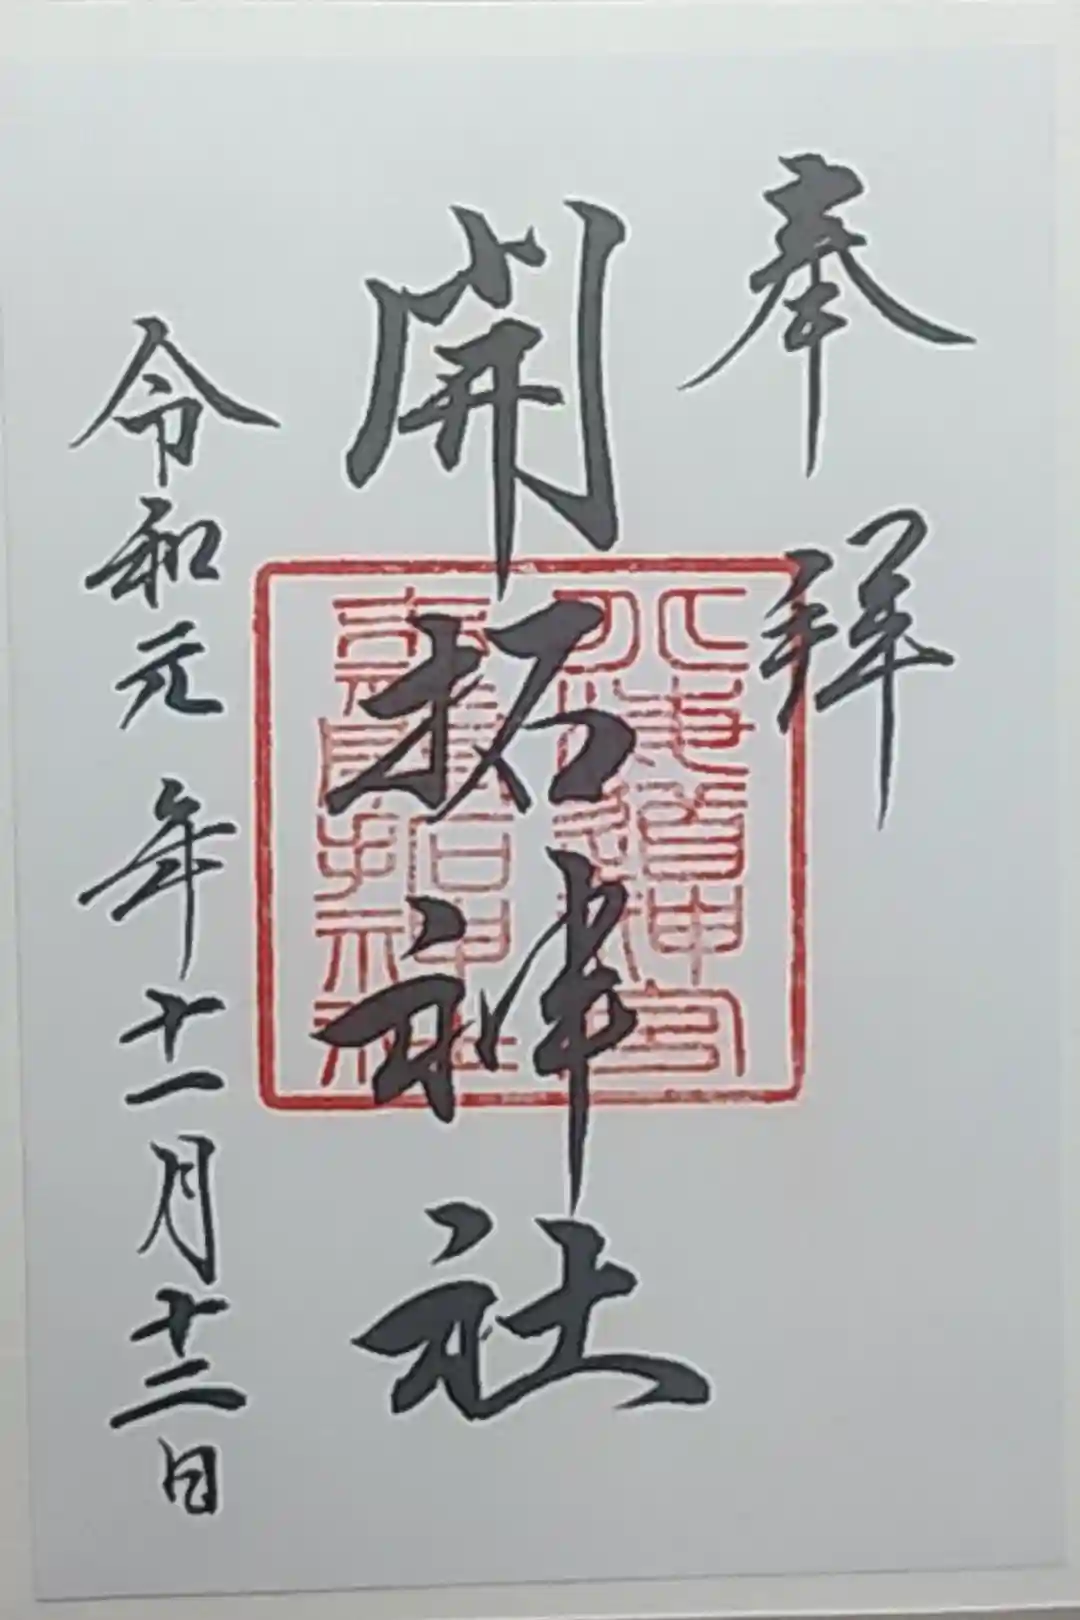 奉拝
開拓神社
令和元年十一月十二日
北海道神宮
末社開拓神社